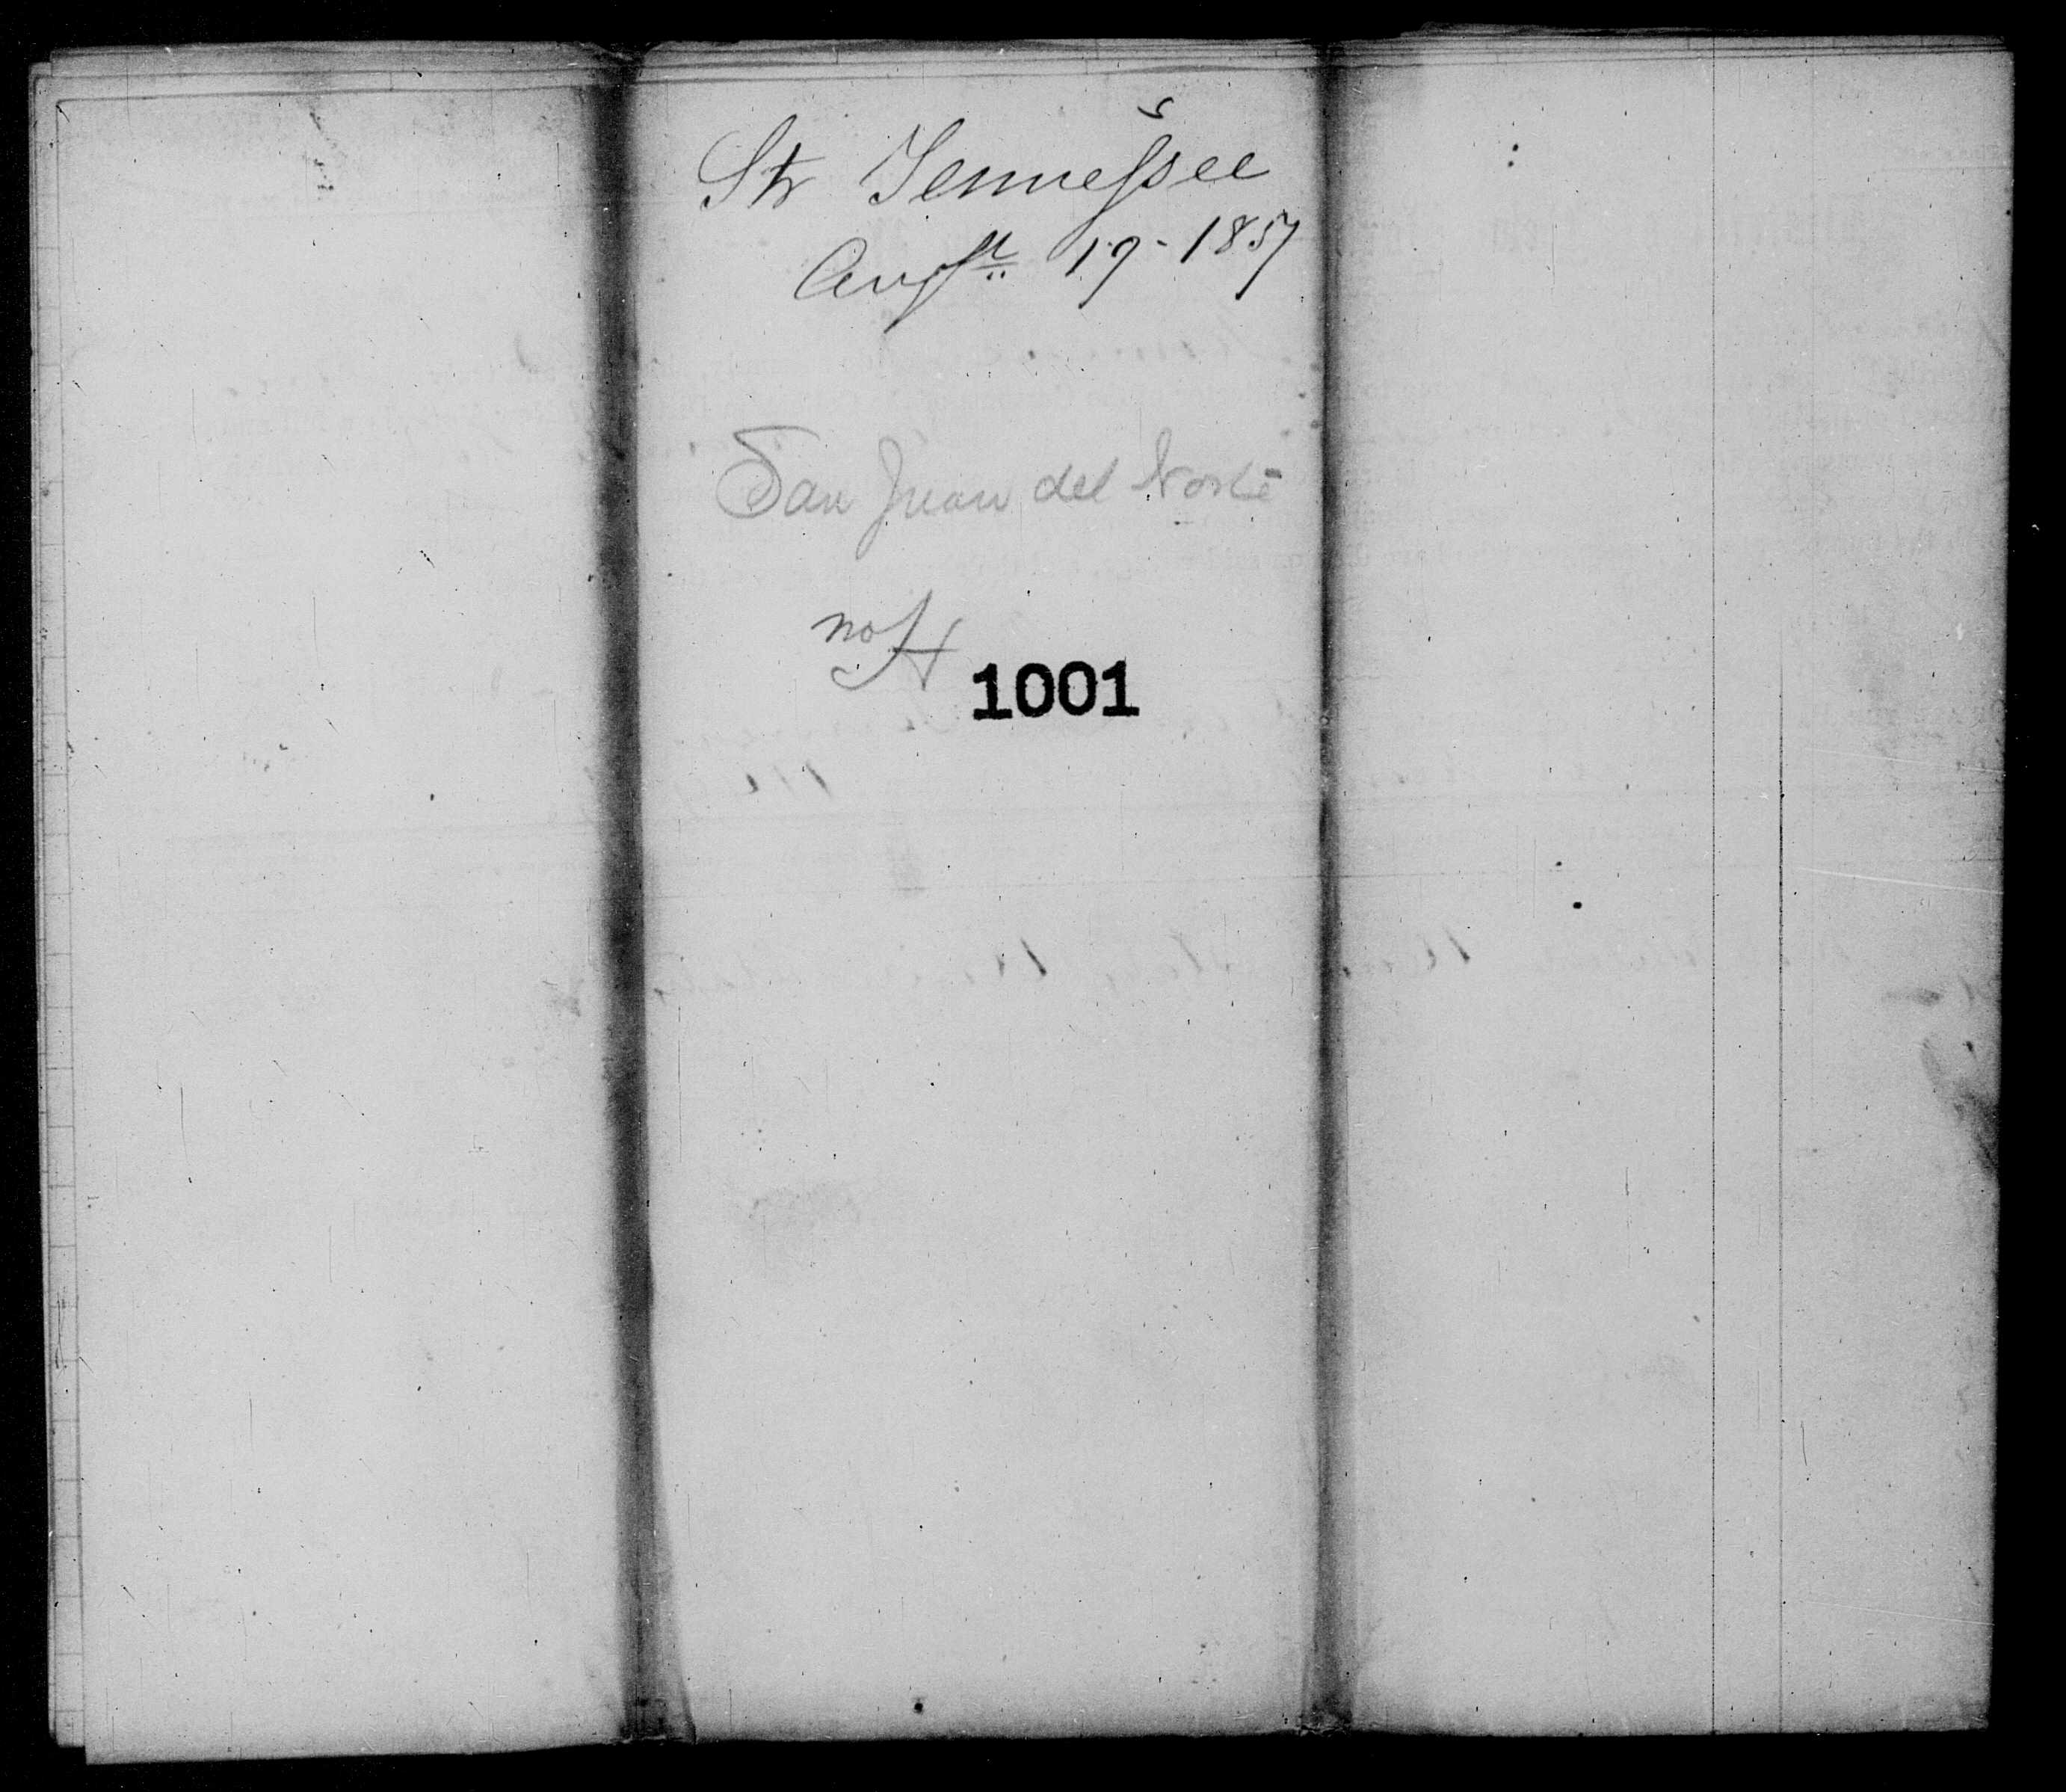 Str Tennessee
Augst 19 - 1857
San Juan del Norte
no
1001